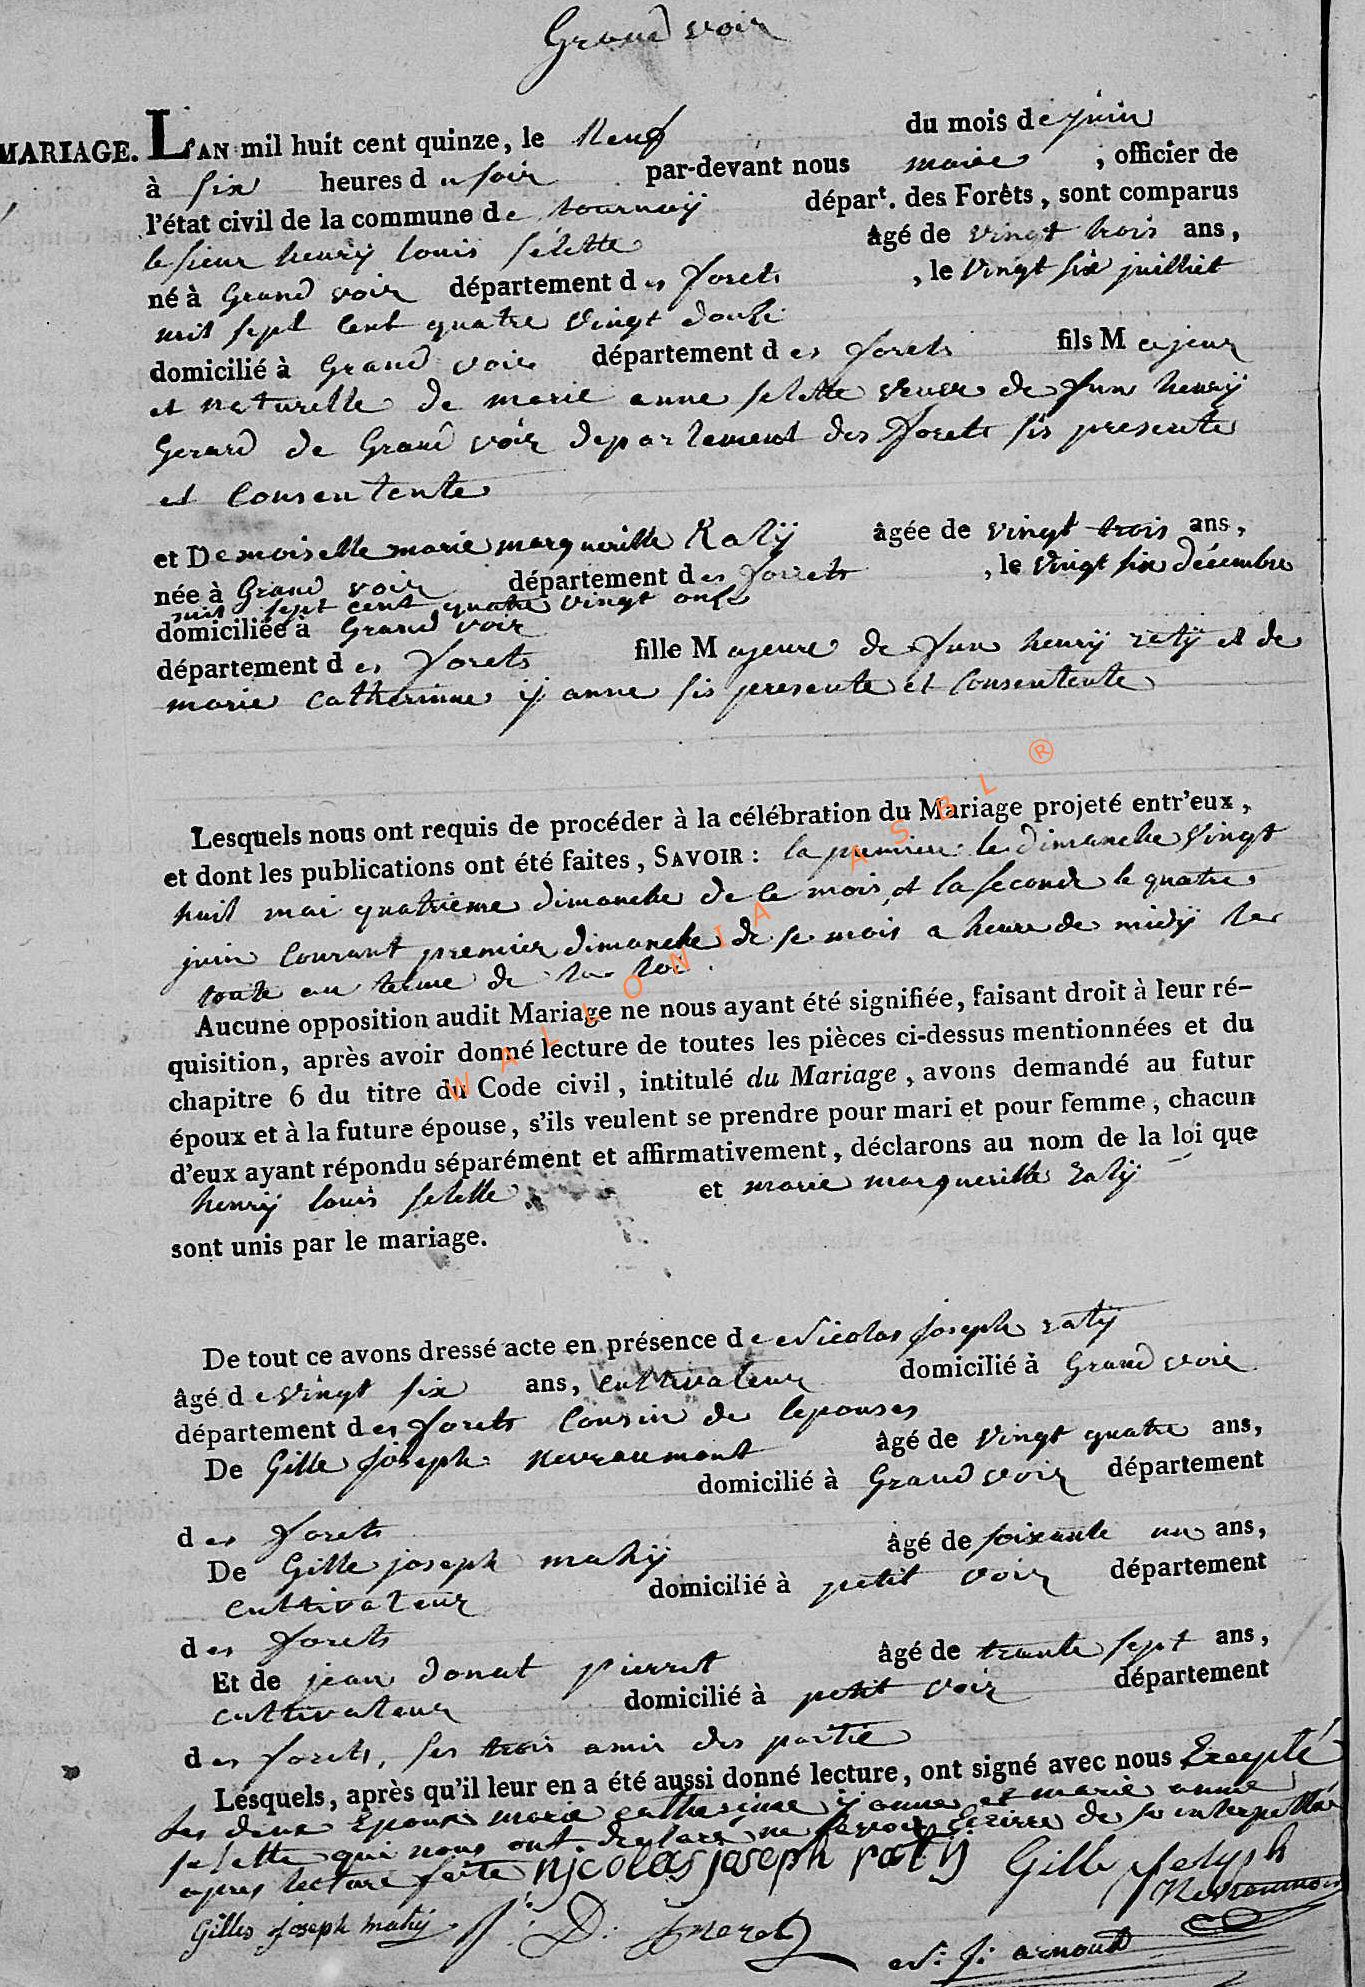 Grand voir
MARIAGE. L'AN mil huit cent quinze, le Neuf du mois de juin
à six heures du soir par-devant nous maire, officier de
l'état civil de la commune de tournay départ. des Forêts, sont comparus
le sieur henrÿ louis selette âgé de vingt trois ans,
né à Grand voir département des forets, le vingt six juilliet
mil sept cent quatre vingt douze
domicilié à Grand voir département des forets fils Majeur
et naturelle de marie anne selette veuve de funs henrÿ
Gerard de Grand voir departement des forets sis presente
et Consentente
et Demoiselle marie marguerille Ratÿ âgée de vingt trois ans,
née à Grand voir département des forrets, le vingt six décembre
mil sept cent quatre vingt onze
domiciliée à Grand voir
département des forets fille Majeure de funs henrÿ ratÿ et de
marie catherinne ÿ anne sis presente et Consentente
Lesquels nous ont requis de procéder à la célébration du Mariage projeté entr'eux,
et dont les publications ont été faites, SAVOIR : la premiere le dimanche vingt
huit mai quatrieme dimanche de ce mois et la seconde le quatre
juin Courant premier dimanche de se mois a heure de midÿ
toute au terme de la loi.
Aucune opposition audit Mariage ne nous ayant été signifiée, faisant droit à leur ré-
quisition, après avoir donné lecture de toutes les pièces ci-dessus mentionnées et du
chapitre 6 du titre du Code civil, intitulé du Mariage, avons demandé au futur
époux et à la future épouse, s'ils veulent se prendre pour mari et pour femme, chacun
d'eux ayant répondu séparément et affirmativement, déclarons au nom de la loi que
henrÿ louis selette et marie marguerille ratÿ
sont unis par le mariage.
De tout ce avons dressé acte en présence de Nicolas joseph ratÿ
âgé de vingt six ans, cultivateur domicilié à Grand voir
département des forets Cousin de lepouses
De Gille joseph nevraumont âgé de vingt quatre ans,
domicilié à Grand voir département
des forets
De Gille joseph mahÿ âgé de soixante un ans,
cultivateur domicilié à petit voir département
des forets
Et de jean donat pierret âgé de trante sept ans,
cultivateur domicilié à petit voir département
des forets, ses trois amis des partie
Lesquels, après qu'il leur en a été aussi donné lecture, ont signé avec nous Excepté
les deux Epoux marie catherinne ÿ anne et marie anne
selette qui nous ont declare ne savoir Ecrire de se interpellé
apres lecture faite Nicolas joseph ratÿ Gille joseph
Nevraumont
Gilles joseph mahÿ J: D: pierret
N: J: arnould
WALLONIA ASBL ®